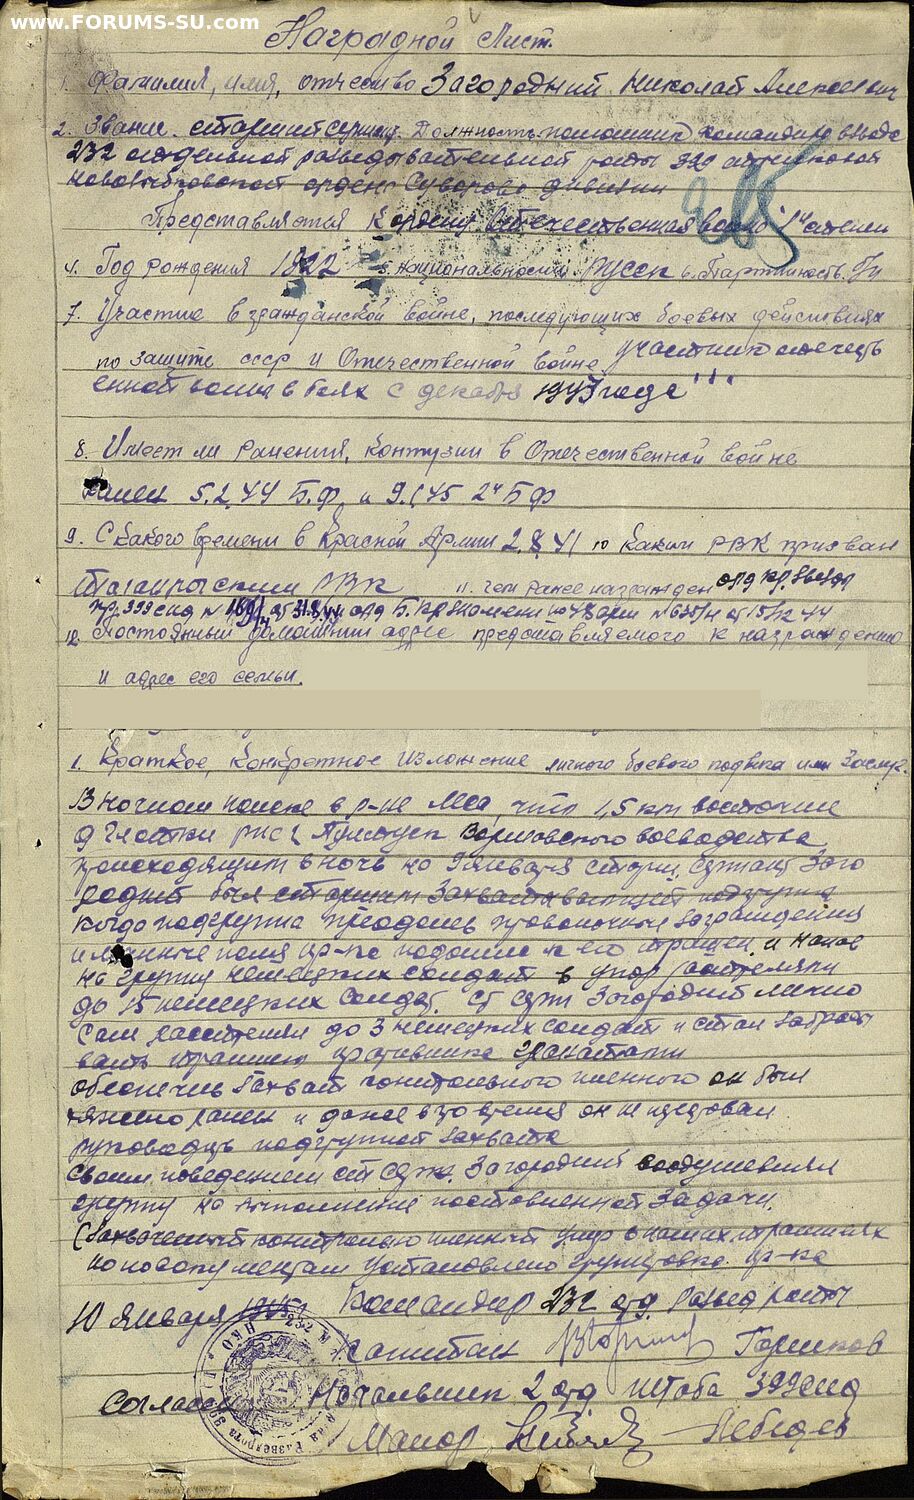 www.FORUMS-SU.com
Наградной Лист.
1. Фамилия, имя, отчество Загородний Николай Алексеевич
2. Звание старший сержант Должность помошник командира взвода
232 отдельной разведывательной роты 399 стрелковой
новозыбковской ордена Суворова дивизии
Представляется к ордену Отечественная война 1й степени
4. Год рождения 1922 5 национальность Русск 6. Партийность
7. Участие в гражданской войне, последующих боевых действиях
по защите СССР и Отечественной войне участник отечеств
енной войны в боях с декабря 1943 года
8. Имеет ли ранения, контузии в Отечественной войне
ранен 5.2.44 Б.Ф. и 9.1.45 2й БФ
9. С какого времени в Красной Армии 2.8.41 10 Каким РВК призван
РВК 11. чем ранее награжден орд Кр. Звезда
пр. 399 сид № от 31.8.44 орд Б. Кр Знамени по 48 арм
12. Постоянный домашний адрес представляемого к награждению
и адрес его семьи.
1. Краткое, конкретное изложение личного боевого подвига или Заслуг.
В ночном поиске в р-не что 1,5 км восточнее
Пултуск Воршовского воеводства
происходящим в ночь на 9 января старш. сержант Заго
родний был старшим Захватывающей подгруппы
когда подгруппа преодолев проволочные заграждения
и минные поля пр-ка подошли к его траншеи и напав
на группу немецких солдат в упор расстреляли
до 15 немецких солдат. Ст серж Загородний лично
сам расстрелял до 3 немецких солдат и стал забрасы
вать траншею противника гранатами
обеспечив захват контрольного пленного он был
тяжело ранен и даже в это время он не
руководить подгруппой захвата
Своим поведением ст серж. Загородний воодушевлял
группу на выполнение поставленной задачи.
(Захваченный контрольно пленный умер в наших траншеях
но по документам установлено группировка пр-ка
10 января 1945 г Командир 232 отд. Развед роты
Капитан Горшков
Согласен Начальник 2 отд штаба 399 сид
Майор Лебедев